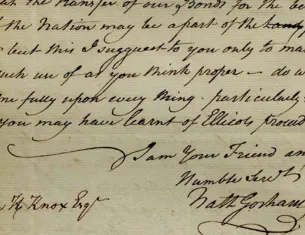 the transfer of our Bonds for the be
the Nation may be a part of the
but this I suggest to you only to ma
such use of as you think proper — do w
me fully upon every thing particularly
you may have learnt of Ellicots proceed
I am Your Friend an
Humble Servt
Nath Gorham
H Knox Esqr